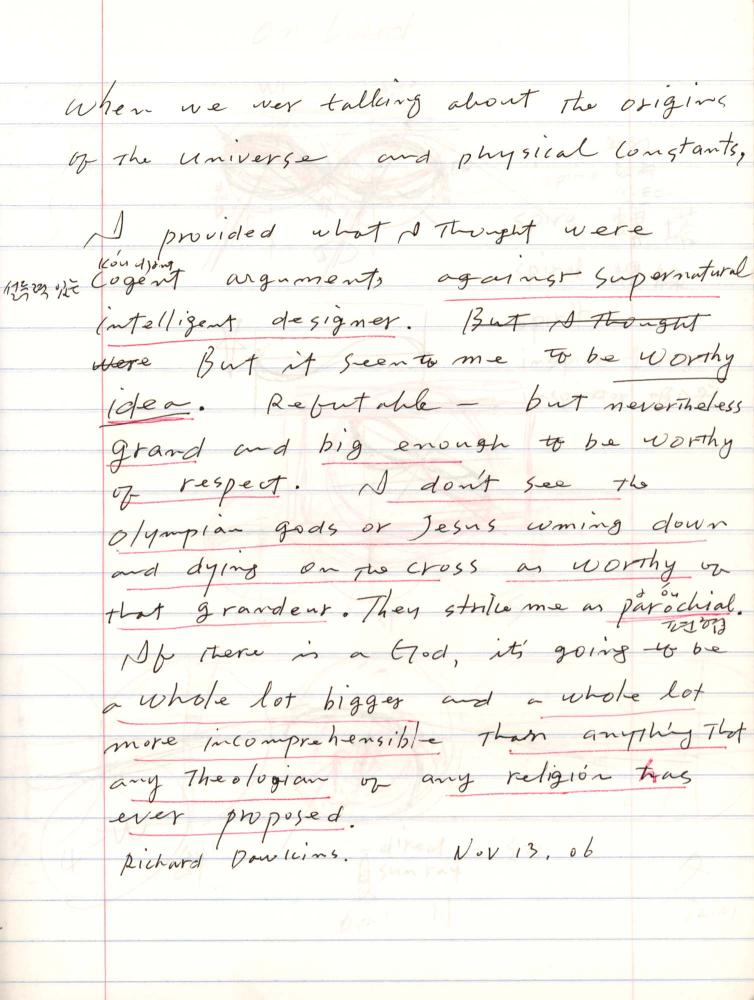 When we wer talking about the origins
of the universe and physical constants,
I provided what I thought were
설득력 있는 Cogent arguments against supernatural
intelligent designer. But I thought
were But it seem to me to be worthy
idea. Refutable — but nevertheless
grand and big enough to be worthy
of respect. I don't see the
olympian gods or Jesus coming down
and dying on the cross as worthy of
that grandeur. They strike me as parochial.
편협
If there is a God, it's going to be
a whole lot bigger and a whole lot
more incomprehensible than anything that
any theologian of any religion has
ever proposed.
Richard Dawkins. Nov 13, 06